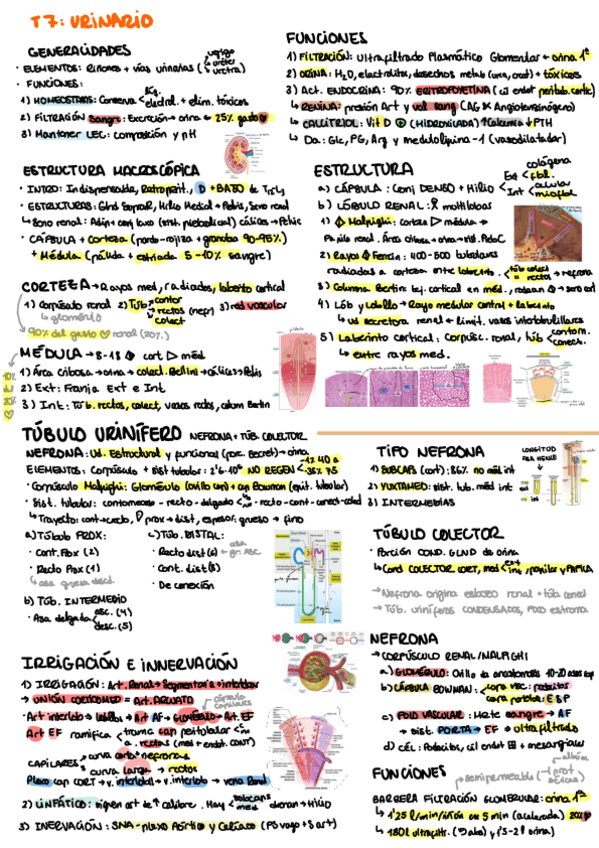 T7: URINARIO
GENERALIDADES
· ELEMENTOS: Riñones + vías urinarias (vejiga uréter uretra)
· FUNCIONES:
1) HOMEOSTASIS: Conserva electrol. + elim. tóxicos
2) FILTRACIÓN Sangre: Excreción → orina ← 25% gasto
3) Mantener LEC: composición y pH
FUNCIONES
1) FILTRACIÓN: Ultrafiltrado Plasmático Glomerular = orina 1ª
2) ORINA: H2O, electrolitos, desechos metab (urea, creat) + tóxicos
3) Act. ENDOCRINA: 90% ERITROPOYETINA (cél endot peritub. cortic)
↳ RENINA: presión Art y vol sang (CAG Angiotensinógeno)
↳ CALCITRIOL: Vit D (HIDROXILADA) ↑Calcemia ↓PTH
↳ Da: Glc, PG, Arg y medulolipina-1 (vasodilatador)
ESTRUCTURA MACROSCÓPICA
· INTRO: Indispensable, Retroperit., D + BAJO de T12-L3
· CÁPSULA + corteza (pardo-rojiza + granulosa 90-95%)
+ Médula (pálida + estriada 5-10% sangre)
CORTEZA → Rayos med, radiados, laberinto cortical
1) Corpúsculo renal 2) Túb. contor rectos (nefr) colect 3) red vascular
↳ glomérulo
90% del gasto renal (20%)
MÉDULA → 8-18 cort med
1) Área Cribosa → orina → colect. Bellini → Cálices → Pelvis
2) Ext: Franja Ext e Int
3) Int: Túb. rectos, colect, vasos rectos, colum Bertin
ESTRUCTURA
a) CÁPSULA: Conj DENSO + Hilio Ext fbl. Int celular miofbl. colágena
b) LÓBULO RENAL: multilobar
1) Malpighi: corteza médula
2) Rayos Ferrein: 400-500 tubulares
radiados a corteza entre laberinto. túb colect rectos → nefrona
4) Lób y Lobillo → Rayo medular central + laberinto
↳ ud secretora renal limit. vasos interlobulillares
5) Laberinto cortical: corpúsc. renal, túb contorn. conect.
↳ entre rayos med.
TÚBULO URINÍFERO NEFRONA + TÚB. COLECTOR
NEFRONA: Ud. Estructural y funcional (for. secret) → orina
ELEMENTOS: Corpúsculo + sist tubular: 2'6·10⁶ NO REGEN
· Corpúsculo Malpighi: Glomérulo (ovillo cap) + cap Bowman (epit. tubular)
· Sist. tubular: contorneado - recto - delgado - recto - cont - conect - colect
↳ Trayecto: cont → recto, prox → dist, espesor: grueso → fino
a) Túbulo PROX:
· Cont. Prox (2)
· Recto Prox (1)
↳ asa gruesa desc
b) Túb. INTERMEDIO
· Asa delgada asc. (4) desc. (5)
c) Túb. DISTAL:
· Recto dist (6) asa gr. ASC
· Cont. dist (8)
· De conexión
TIPO NEFRONA
LONGITUD ASA HENLE
1) SUBCAPS (cort): 86% no méd int
2) YUXTAMED: sist. tub. méd int
3) INTERMEDIAS
TÚBULO COLECTOR
· Porción COND. GLND de orina
↳ Cond COLECTOR CORT, med ext int, papilar y PAPILA
→ Nefrona origina esbozo renal + túb conect
→ Túb. uriníferos CONDENSADOS, POCO estroma
IRRIGACIÓN E INNERVACIÓN
1) IRRIGACIÓN: Art. Renal → Segmentaria → interlobar
→ UNIÓN CORTICOMED = Art. ARCUATA
· Art interlob → lobillos → Art AF → GLOMÉRULO → Art. EF
cápsula capilares
Art EF ramifica trama cap peritubular a. rectas (med + endot. CONT)
CAPILARES curva corta nefronas curva larga → rectos
Plexo cap CORT → v. interlobill → v. interlob → vena Renal
2) LINFÁTICO: siguen art de ↑ calibre. Hay subcaps med drenan → Hilio
3) INERVACIÓN: SNA - plexo Aórtico y Celíaco (PS vago + S art)
NEFRONA
→ CORPÚSCULO RENAL/MALPIGHI
a) GLOMÉRULO: Ovillo de anastomosis 10-20 asas cap
b) CÁPSULA BOWMAN: capa visc: podocitos capa parietal: E S P
c) POLO VASCULAR: Mete sangre → AF
→ sist. PORTA → EF ultrafiltrado
d) CÉL: Podocitos, cél endot + mesangiales
FUNCIONES
semipermeable
BARRERA FILTRACIÓN GLOMERULAR: orina 1ª
↳ 1'25 l/min/riñón en 5 min (acelerada) 20%
↳ 180l ultrafiltr. (abs) y 1'5-2 l orina)